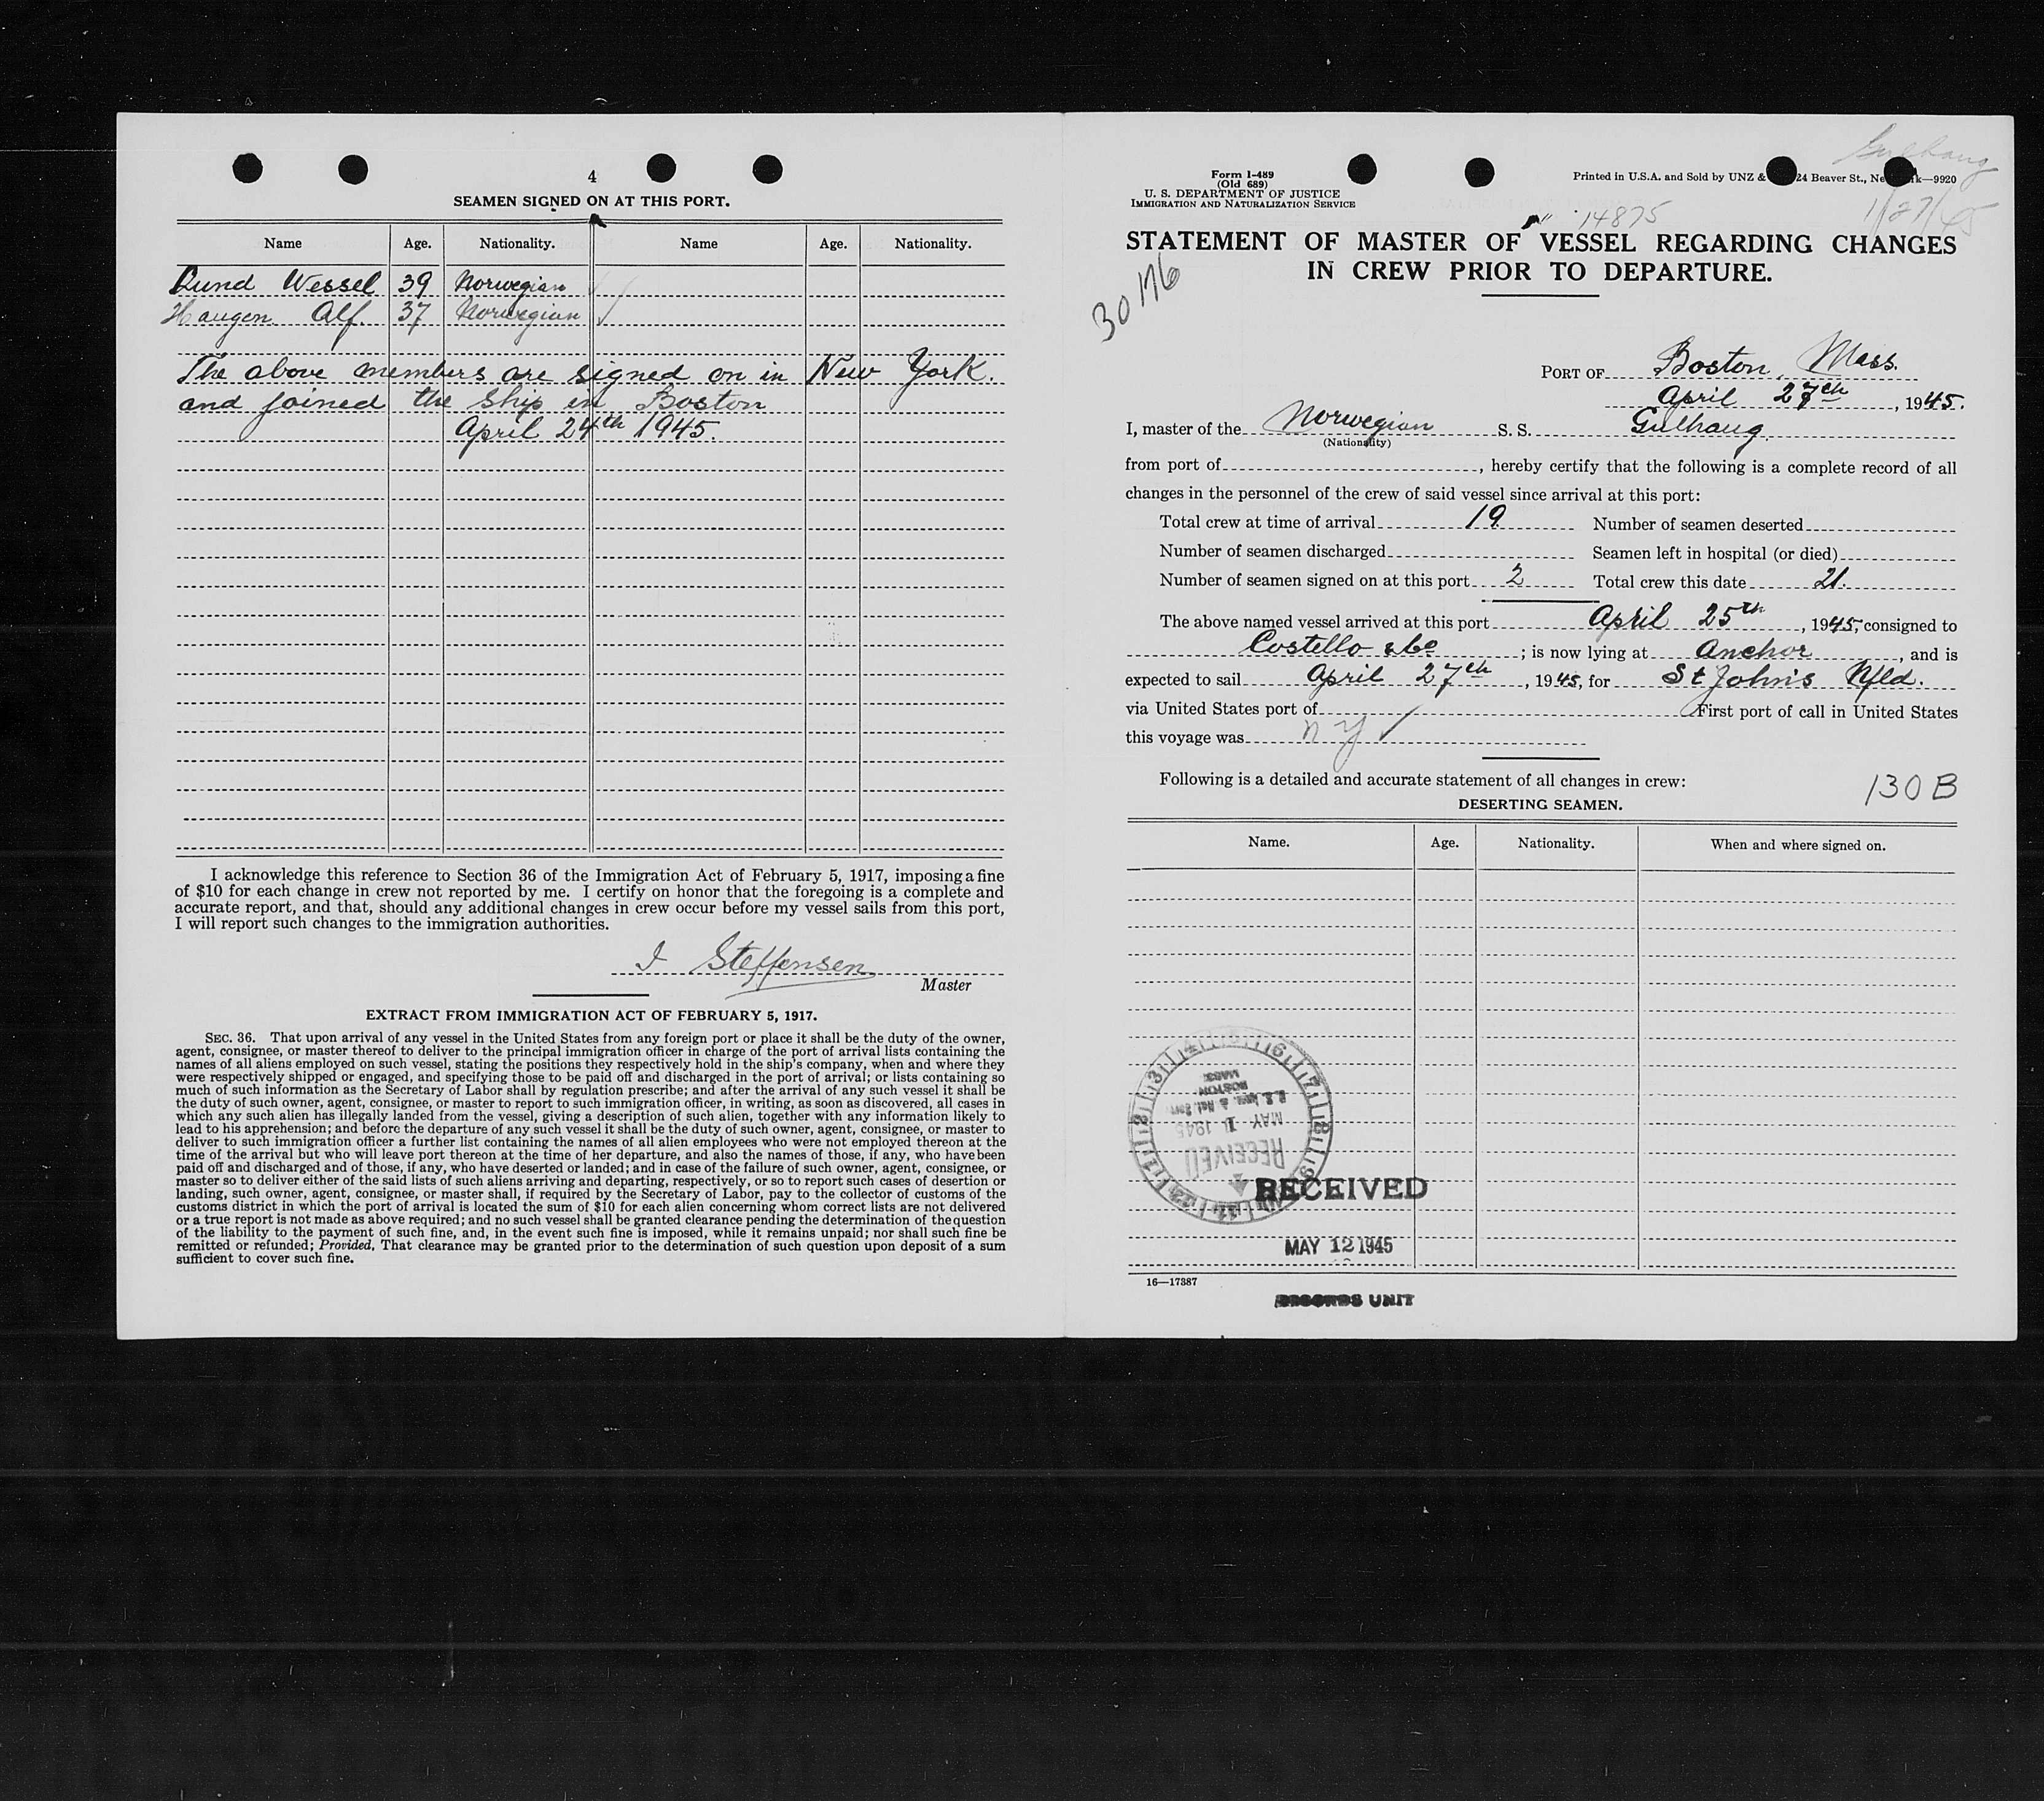 4
SEAMEN SIGNED ON AT THIS PORT.
Name Age. Nationality. Name Age. Nationality.
Lund Wessel 39 Norwegian
Haugen Alf. 37 Norwegian
The above members are signed on in New York.
and joined the ship in Boston
April 24th 1945.
I acknowledge this reference to Section 36 of the Immigration Act of February 5, 1917, imposing a fine
of $10 for each change in crew not reported by me. I certify on honor that the foregoing is a complete and
accurate report, and that, should any additional changes in crew occur before my vessel sails from this port,
I will report such changes to the immigration authorities.
I Steffensen
Master
EXTRACT FROM IMMIGRATION ACT OF FEBRUARY 5, 1917.
SEC. 36. That upon arrival of any vessel in the United States from any foreign port or place it shall be the duty of the owner,
agent, consignee, or master thereof to deliver to the principal immigration officer in charge of the port of arrival lists containing the
names of all aliens employed on such vessel, stating the positions they respectively hold in the ship's company, when and where they
were respectively shipped or engaged, and specifying those to be paid off and discharged in the port of arrival; or lists containing so
much of such information as the Secretary of Labor shall by regulation prescribe; and after the arrival of any such vessel it shall be
the duty of such owner, agent, consignee, or master to report to such immigration officer, in writing, as soon as discovered, all cases in
which any such alien has illegally landed from the vessel, giving a description of such alien, together with any information likely to
lead to his apprehension; and before the departure of any such vessel it shall be the duty of such owner, agent, consignee, or master to
deliver to such immigration officer a further list containing the names of all alien employees who were not employed thereon at the
time of the arrival but who will leave port thereon at the time of her departure, and also the names of those, if any, who have been
paid off and discharged and of those, if any, who have deserted or landed; and in case of the failure of such owner, agent, consignee, or
master so to deliver either of the said lists of such aliens arriving and departing, respectively, or so to report such cases of desertion or
landing, such owner, agent, consignee, or master shall, if required by the Secretary of Labor, pay to the collector of customs of the
customs district in which the port of arrival is located the sum of $10 for each alien concerning whom correct lists are not delivered
or a true report is not made as above required; and no such vessel shall be granted clearance pending the determination of the question
of the liability to the payment of such fine, and, in the event such fine is imposed, while it remains unpaid; nor shall such fine be
remitted or refunded; Provided, That clearance may be granted prior to the determination of such question upon deposit of a sum
sufficient to cover such fine.
Gulhaug
Form I-489
(Old 689)
U. S. DEPARTMENT OF JUSTICE
IMMIGRATION AND NATURALIZATION SERVICE
Printed in U.S.A. and Sold by UNZ & 24 Beaver St., Ne k—9920
14875
1/27/45
STATEMENT OF MASTER OF VESSEL REGARDING CHANGES
IN CREW PRIOR TO DEPARTURE.
30176
PORT OF Boston, Mass.
April 27th, 1945.
I, master of the Norwegian S. S. Gulhaug
(Nationality)
from port of , hereby certify that the following is a complete record of all
changes in the personnel of the crew of said vessel since arrival at this port:
Total crew at time of arrival 19 Number of seamen deserted
Number of seamen discharged Seamen left in hospital (or died)
Number of seamen signed on at this port 2 Total crew this date 21.
The above named vessel arrived at this port April 25th, 1945, consigned to
Costello & Co ; is now lying at Anchor , and is
expected to sail April 27th, 1945, for St John's Nfld.
via United States port of First port of call in United States
this voyage was n y
Following is a detailed and accurate statement of all changes in crew:
130 B
DESERTING SEAMEN.
Name. Age. Nationality. When and where signed on.
BOSTON
MASS
MAY 1 1945
RECEIVED
RECEIVED
MAY 12 1945
16—17387
RECORDS UNIT